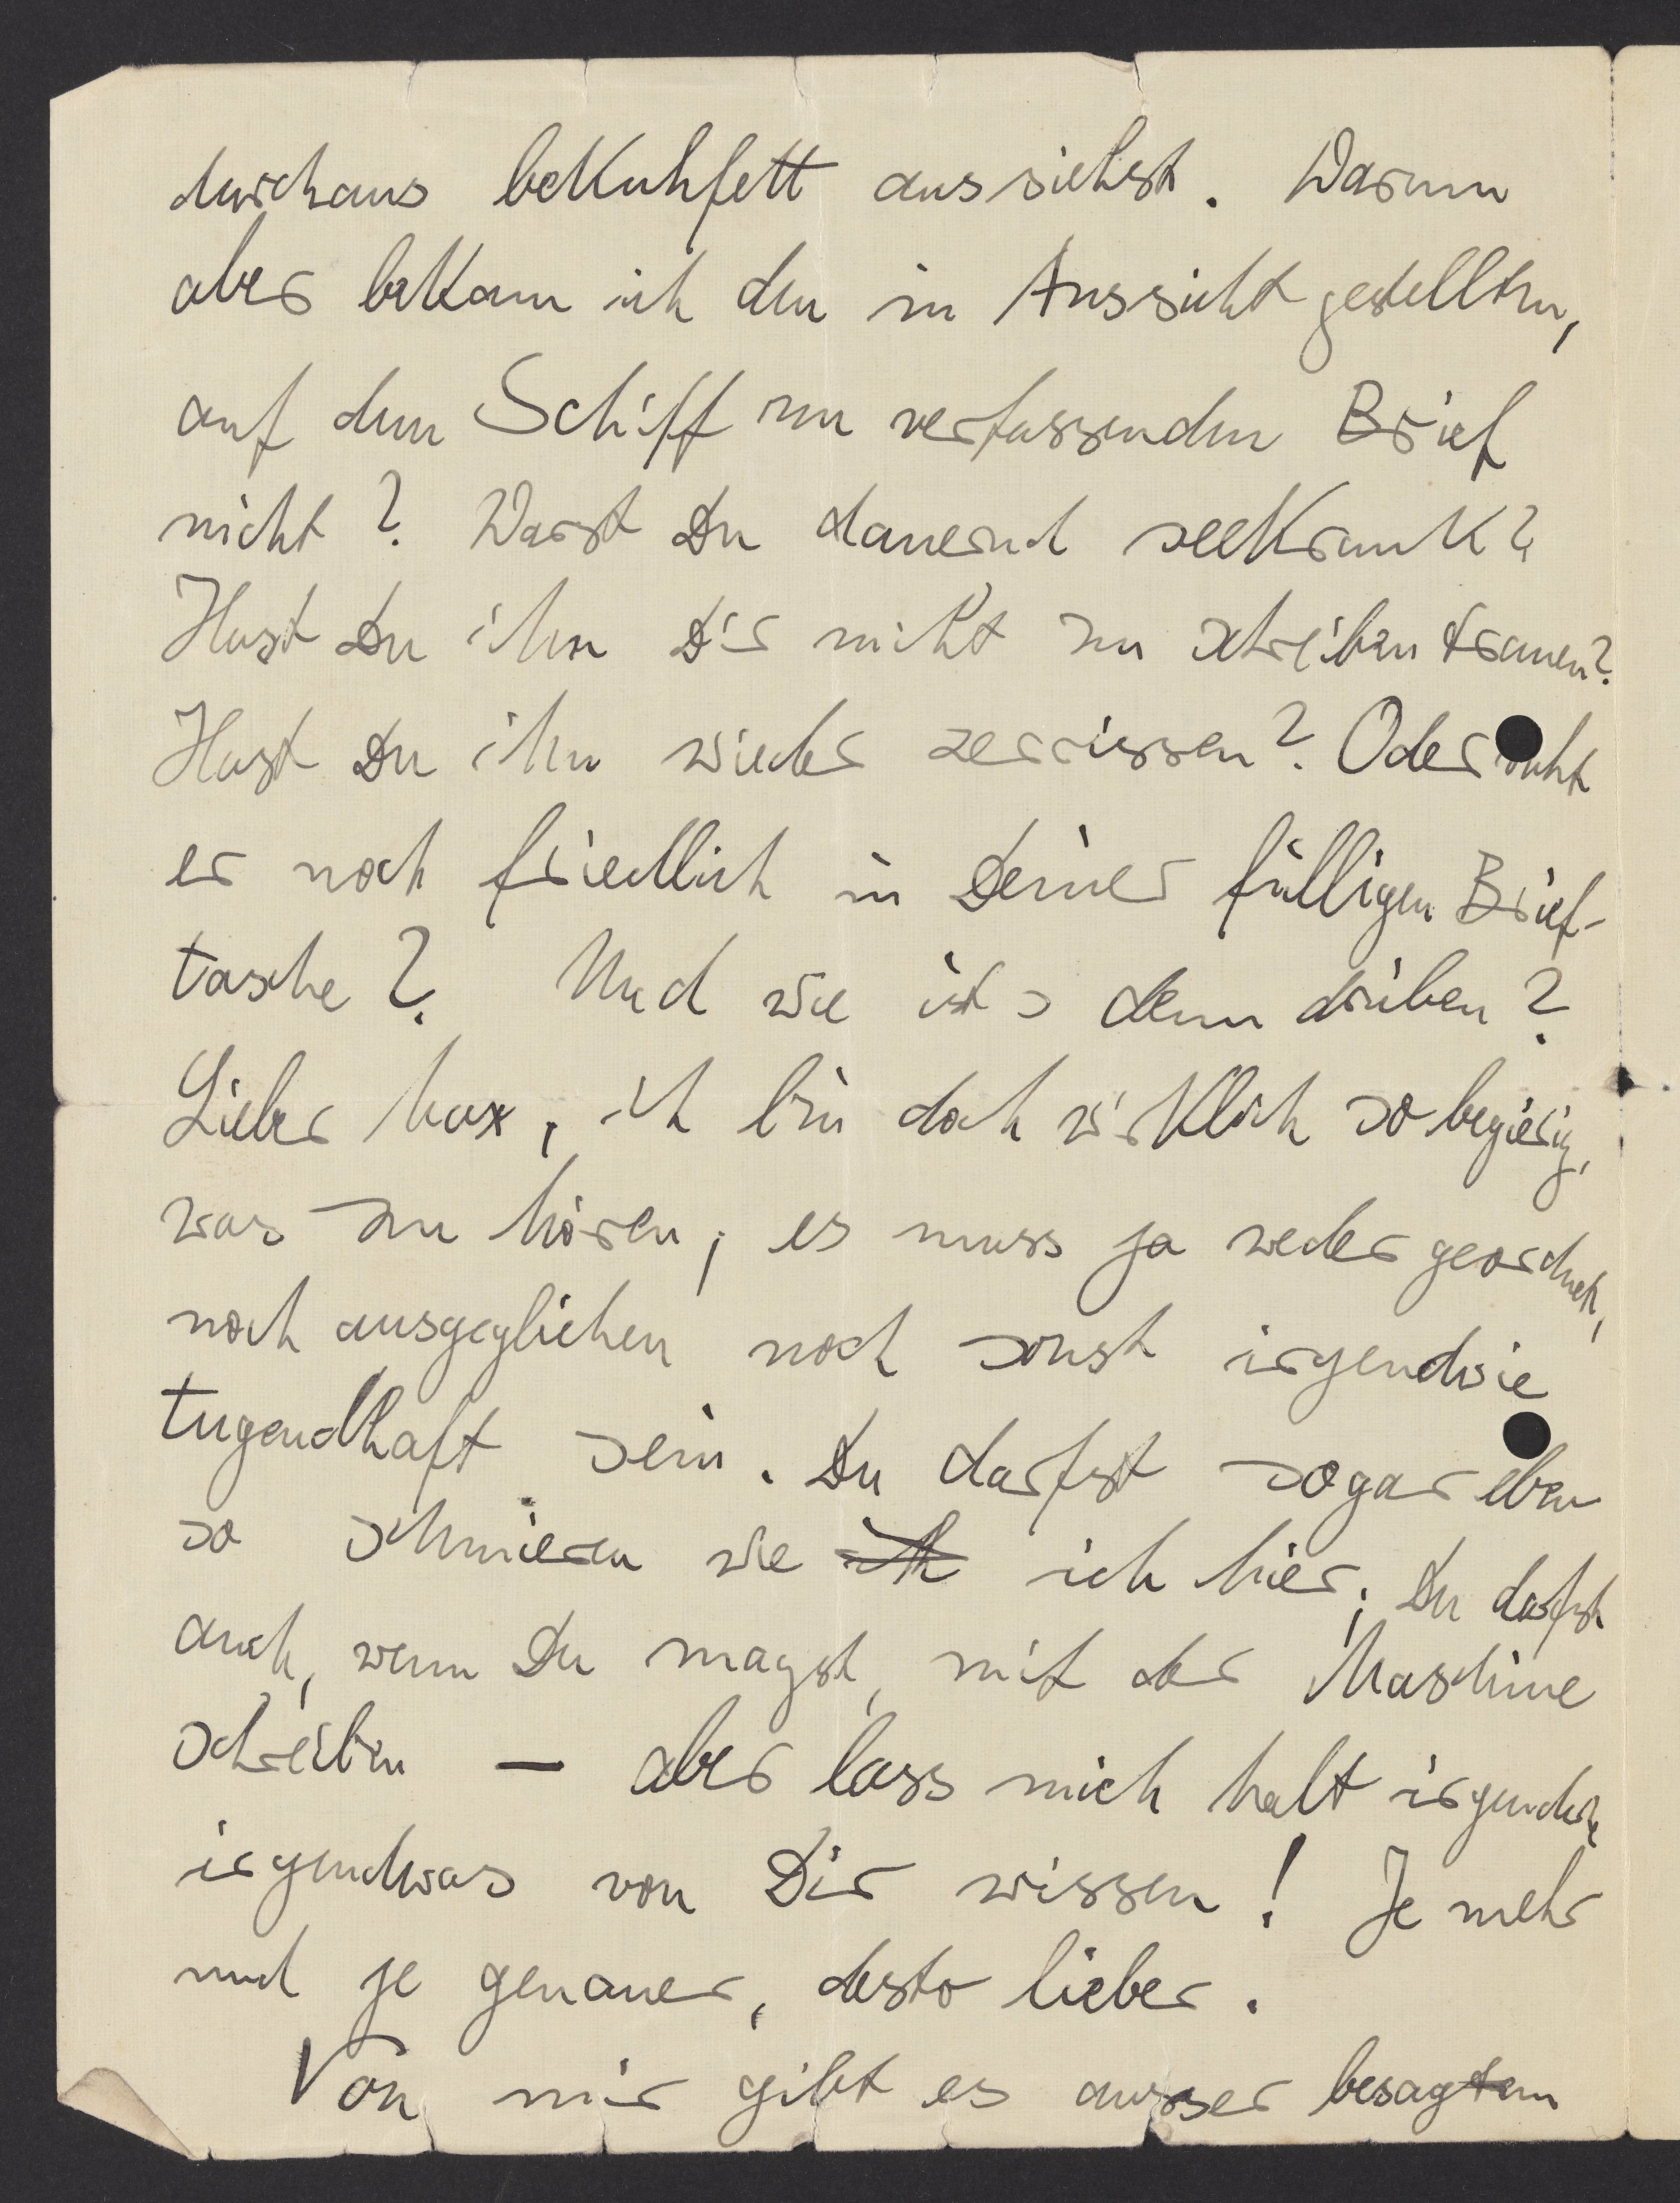 durchaus bekuhfett aussiehst. Warum
aber bekam ich den in Aussicht gestellten,
auf dem Schiff zu verfassenden Brief
nicht? Warst Du dauernd seekrank?
Hast Du ihn Dir nicht zu schreiben trauen?
Hast Du ihn wieder zerrissen? Oder ruht
er noch friedlich in Deiner fülligen Brief-
tasche? Und wie ist's denn drüben?
Lieber Max, ich bin doch wirklich so begierig,
was zu hören; es muss ja weder geordnet,
noch ausgeglichen noch sonst irgendwie
tugendhaft sein. Du darfst sogar eben
so schmieren wie ich ich hier; Du darfst
auch, wenn Du magst, mit der Maschine
schreiben — aber lass mich halt irgendwie
irgendwas von Dir wissen! Je mehr
und je genauer, desto lieber.
Von mir gibt es ausser besagtem